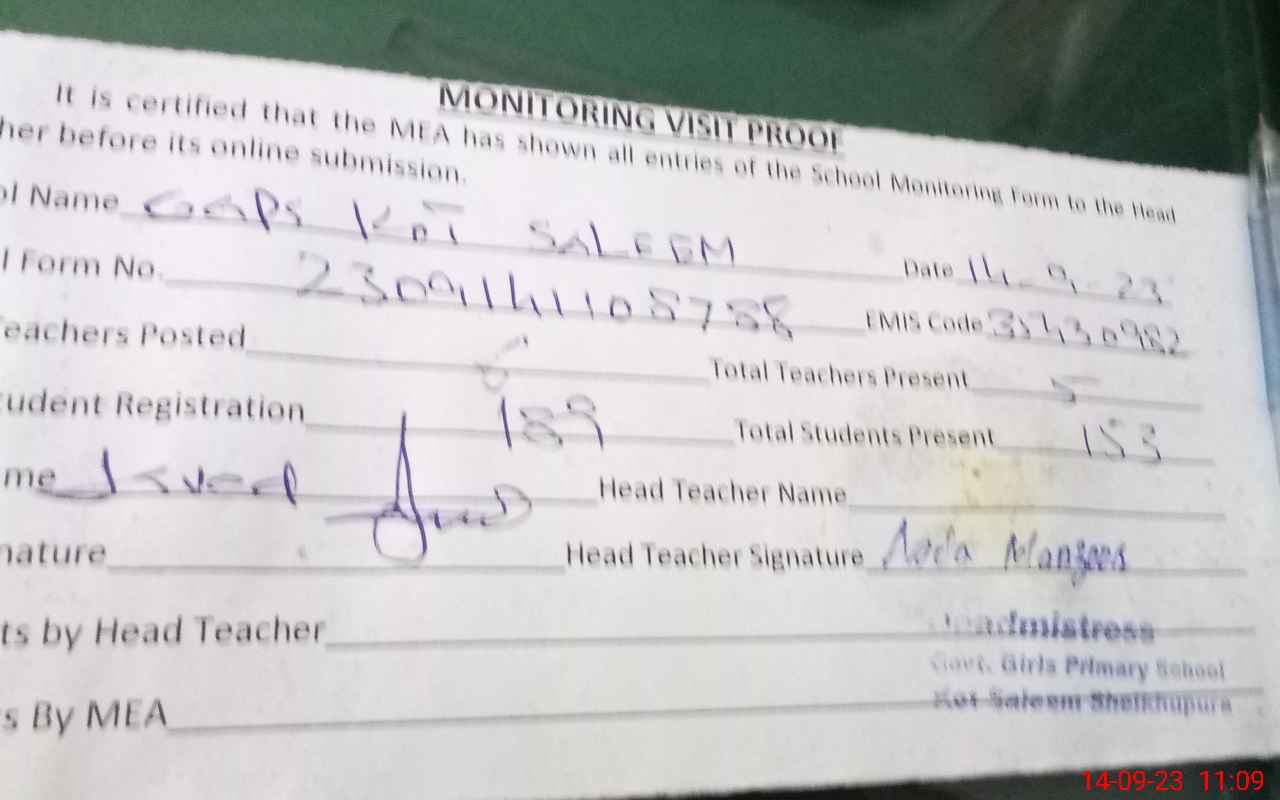 MONITORING VISIT PROOF
It is certified that the MEA has shown all entries of the School Monitoring Form to the Head
her before its online submission.
ol Name GGPS KOT SALEEM Date 14-9-23
l Form No. 2309141108788 EMIS Code 35430982
eachers Posted Total Teachers Present 5
udent Registration 189 Total Students Present 153
me Javed Head Teacher Name
nature Head Teacher Signature Manzoor
ts by Head Teacher
s By MEA
Headmistress
Govt. Girls Primary School
Kot Saleem Sheikhupura
14-09-23 11:09